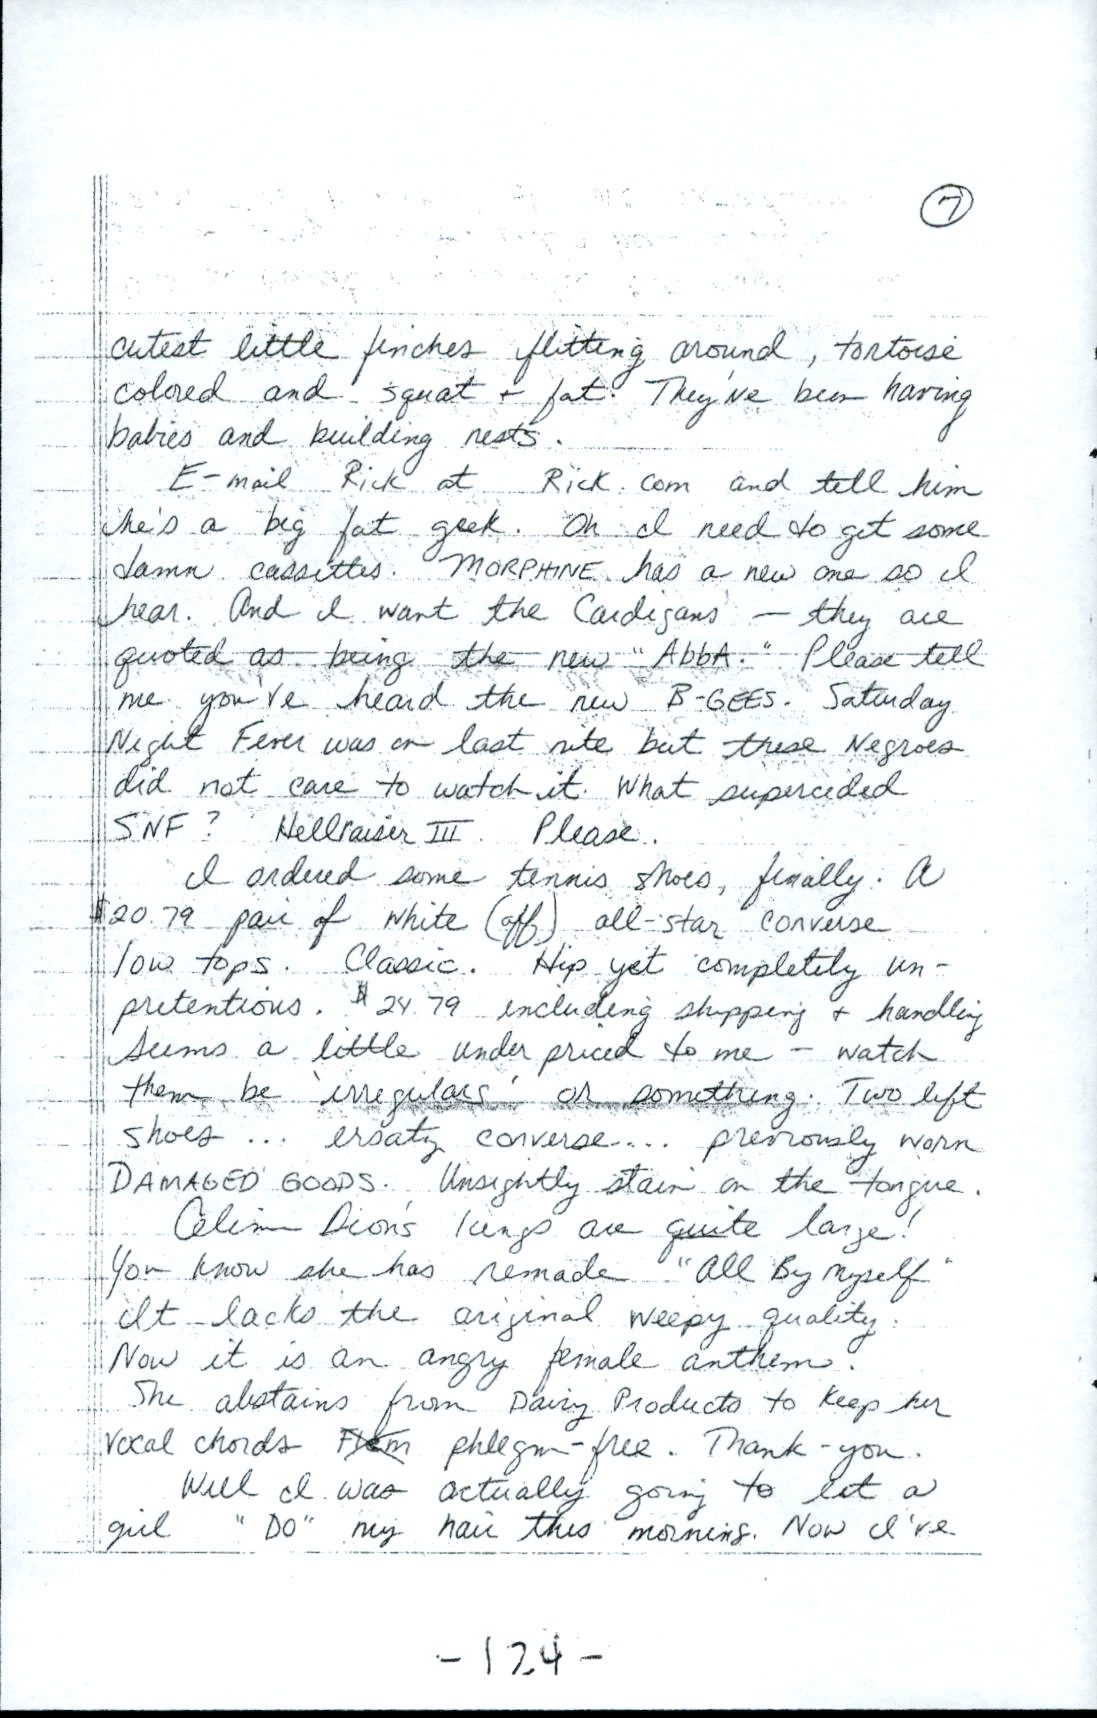 7
cutest little finches flitting around, tortoise
colored and squat + fat. They've been having
babies and building nests.
E-mail Rick at Rick.com and tell him
he's a big fat geek. Oh I need to get some
damn cassettes. MORPHINE has a new one so I
hear. And I want the Cardigans — they are
quoted as being the new "AbbA." Please tell
me you've heard the new B-GEES. Saturday
Night Fever was on last nite but these Negroes
did not care to watch it. What superceded
SNF? Hellraiser III. Please.
I ordered some tennis shoes, finally. A
$20.79 pair of white (off) all-star converse
low tops. Classic. Hip yet completely un-
pretentious. $24.79 including shipping + handling
seems a little under priced to me — watch
them be 'irregulars' or something. Two left
shoes ... ersatz converse.... previously worn
DAMAGED GOODS. Unsightly stain on the tongue.
Celine Dion's lungs are quite large!
You know she has remade "All By Myself"
It lacks the original weepy quality.
Now it is an angry female anthem.
She abstains from Dairy Products to keep her
vocal chords phlegm-free. Thank-you.
Well I was actually going to let a
girl "DO" my hair this morning. Now I've
-124-